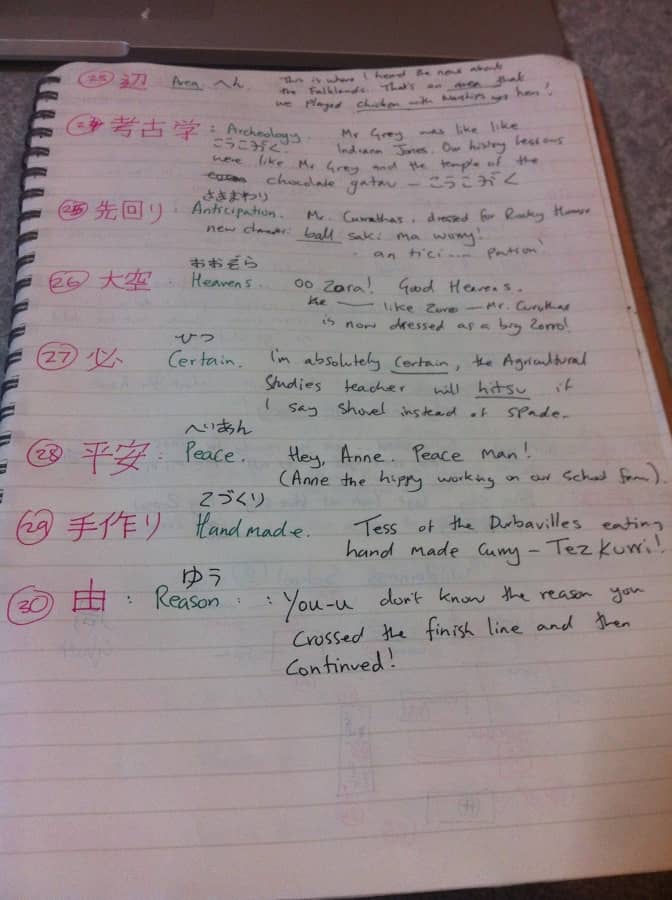 23 辺 : Area へん. This is where I heard the news about
the Falklands. That's an area that
we played chicken with Warships was here!
24 考古学 : Archeology. Mr Grey was like like
こうこがく. Indiana Jones. Our history lessons
were like Mr Grey and the temple of the
chocolate gatau – こうこがく
さきまわり
25 先回り : Anticipation. Mr. Curruthas, dressed for Rocky Horror
new character: ball saki ma wawy!
- an tici.... pation!
おおぞら
26 大空 : Heavens. OO Zora! Good Heavens.
like Zorro – Mr. Curuthas
is now dressed as a big Zorro!
ひつ
27 必 Certain. I'm absolutely certain, the Agricultural
Studies teacher will hitsu if
I say shovel instead of spade.
へいあん
28 平安 : Peace. Hey, Anne. Peace man!
(Anne the hippy working on our School farm).
てづくり
29 手作り Handmade. Tess of the Durbavilles eating
hand made curry – Tez Kurri!
ゆう
30 由 : Reason : : You-u don't know the reason you
crossed the finish line and then
continued!